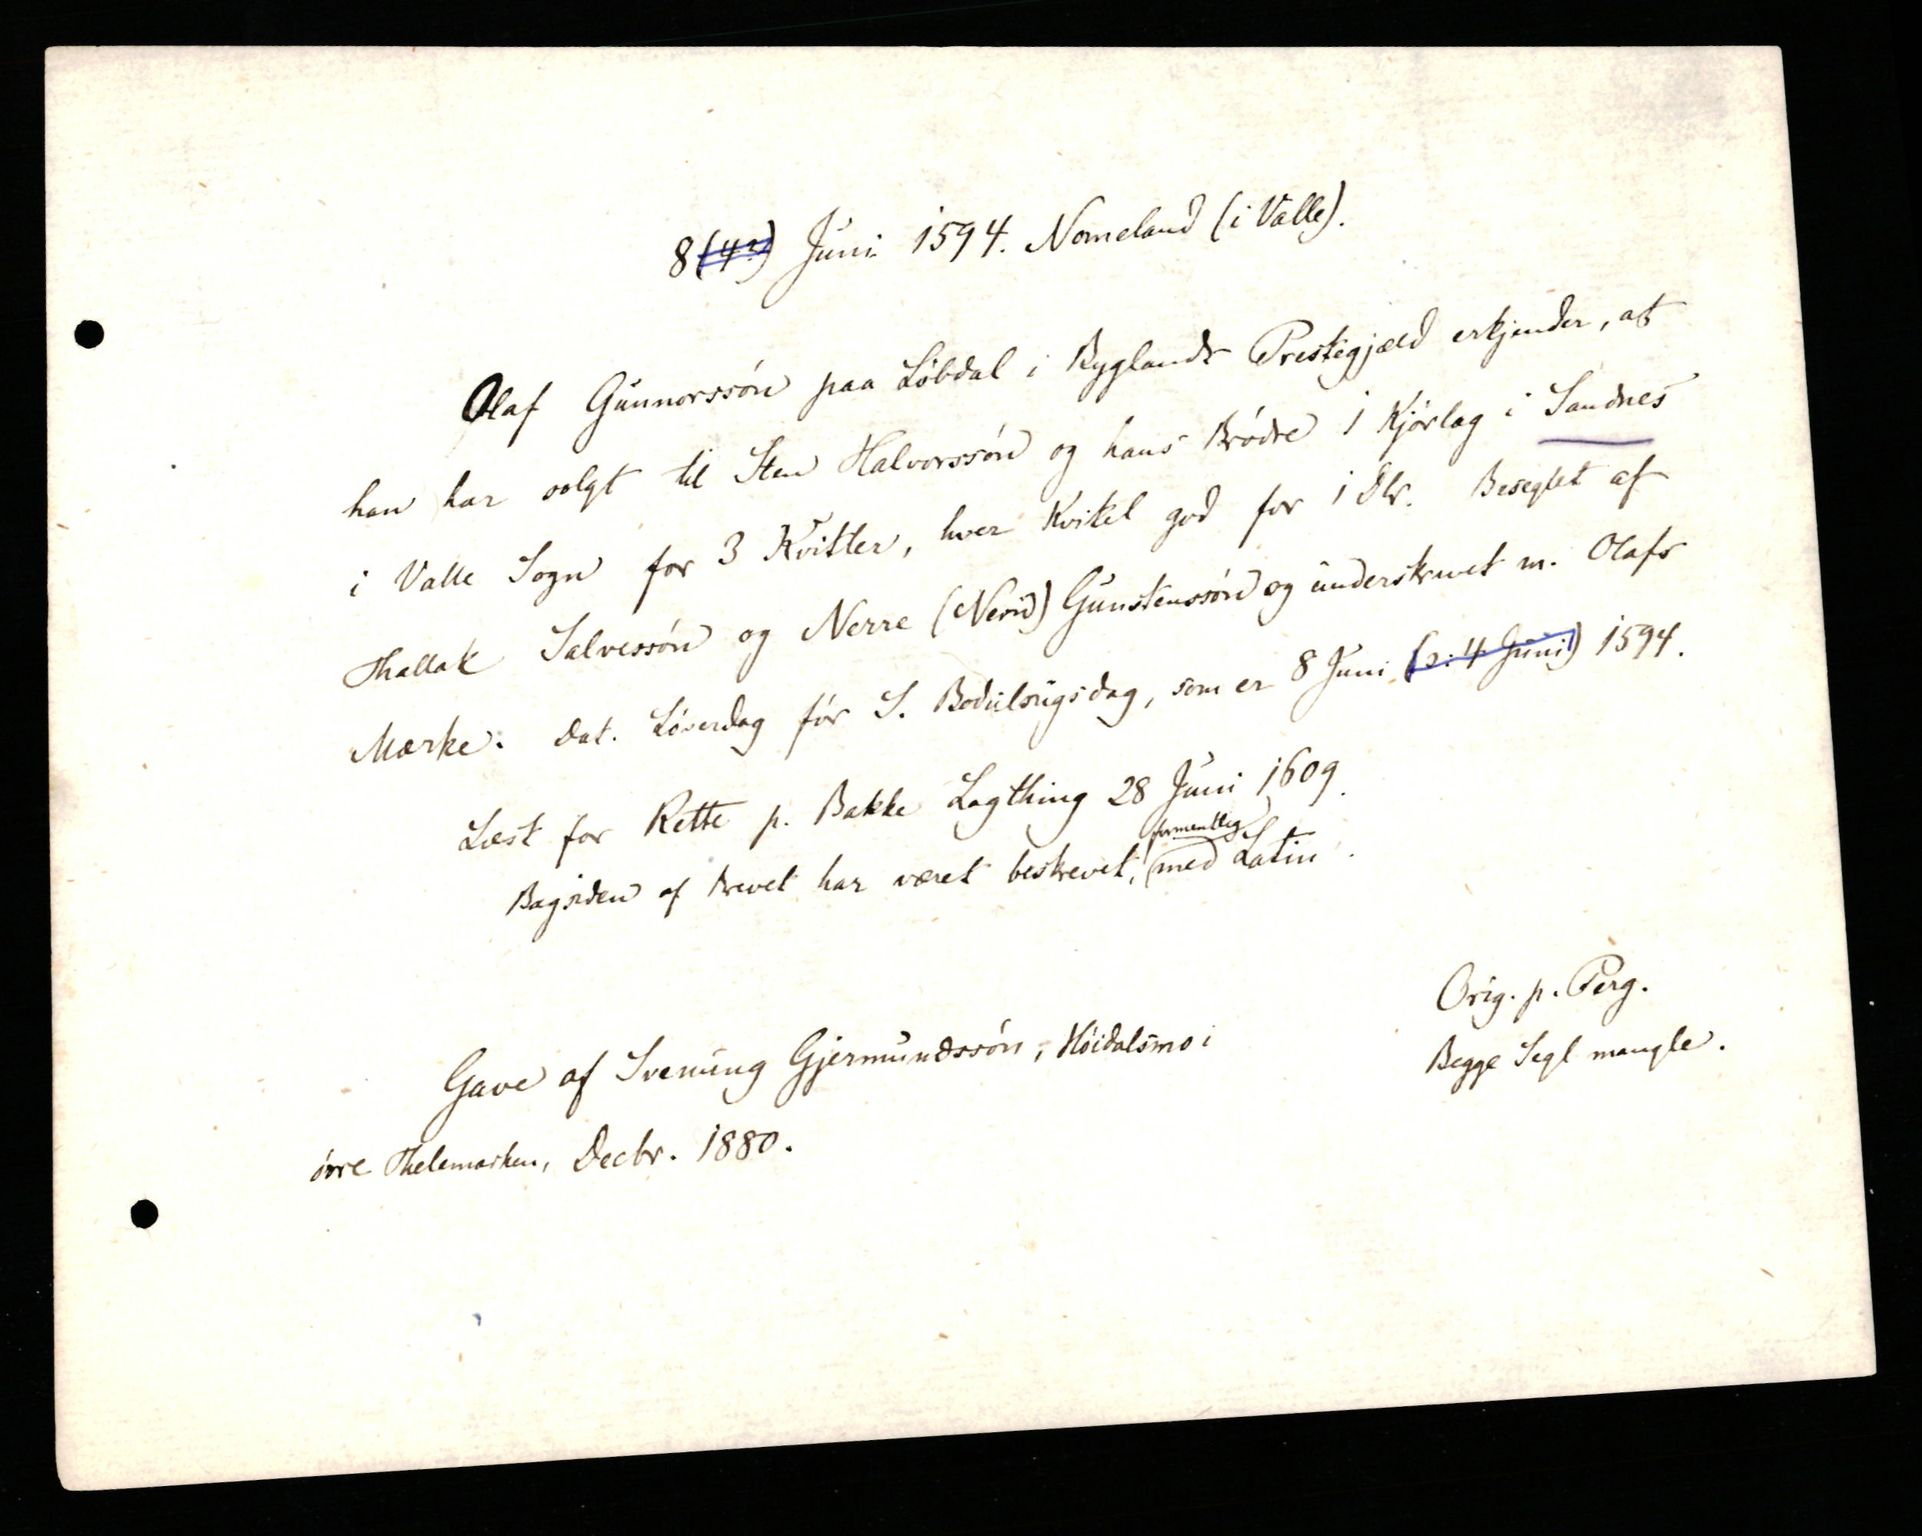 8 (4?) Juni 1594. Nomeland (i Valle).
Olaf Gunnorssön paa Löbdal i Byglands Prestegjæld erkjender, at
han har solgt til Sten Halvorssön og hans Brödre 1 Kjörlag i Sandnes
i Valle Sogn for 3 Kvitler, hver Kvitel god for 1 Dlr. Beseglet af
Thallak Salvessön og Nerre (Nerid) Gunstenssön og underskrevet m. Olafs
Mærke. Dat. Löverdag för S. Bodulsugsdag, som er 8 Juni (ɔ: 4 Juni) 1594.
Læst for Rette p. Bakke Lagthing 28 Juni 1609.
Bagsiden af Brevet har været beskrevet, formentlig med Latin.
Orig. p. Perg.
Begge Segl mangle.
Gave af Svenung Gjermundssön, Höidalsmo i
övre Thelemarken, Decbr. 1880.